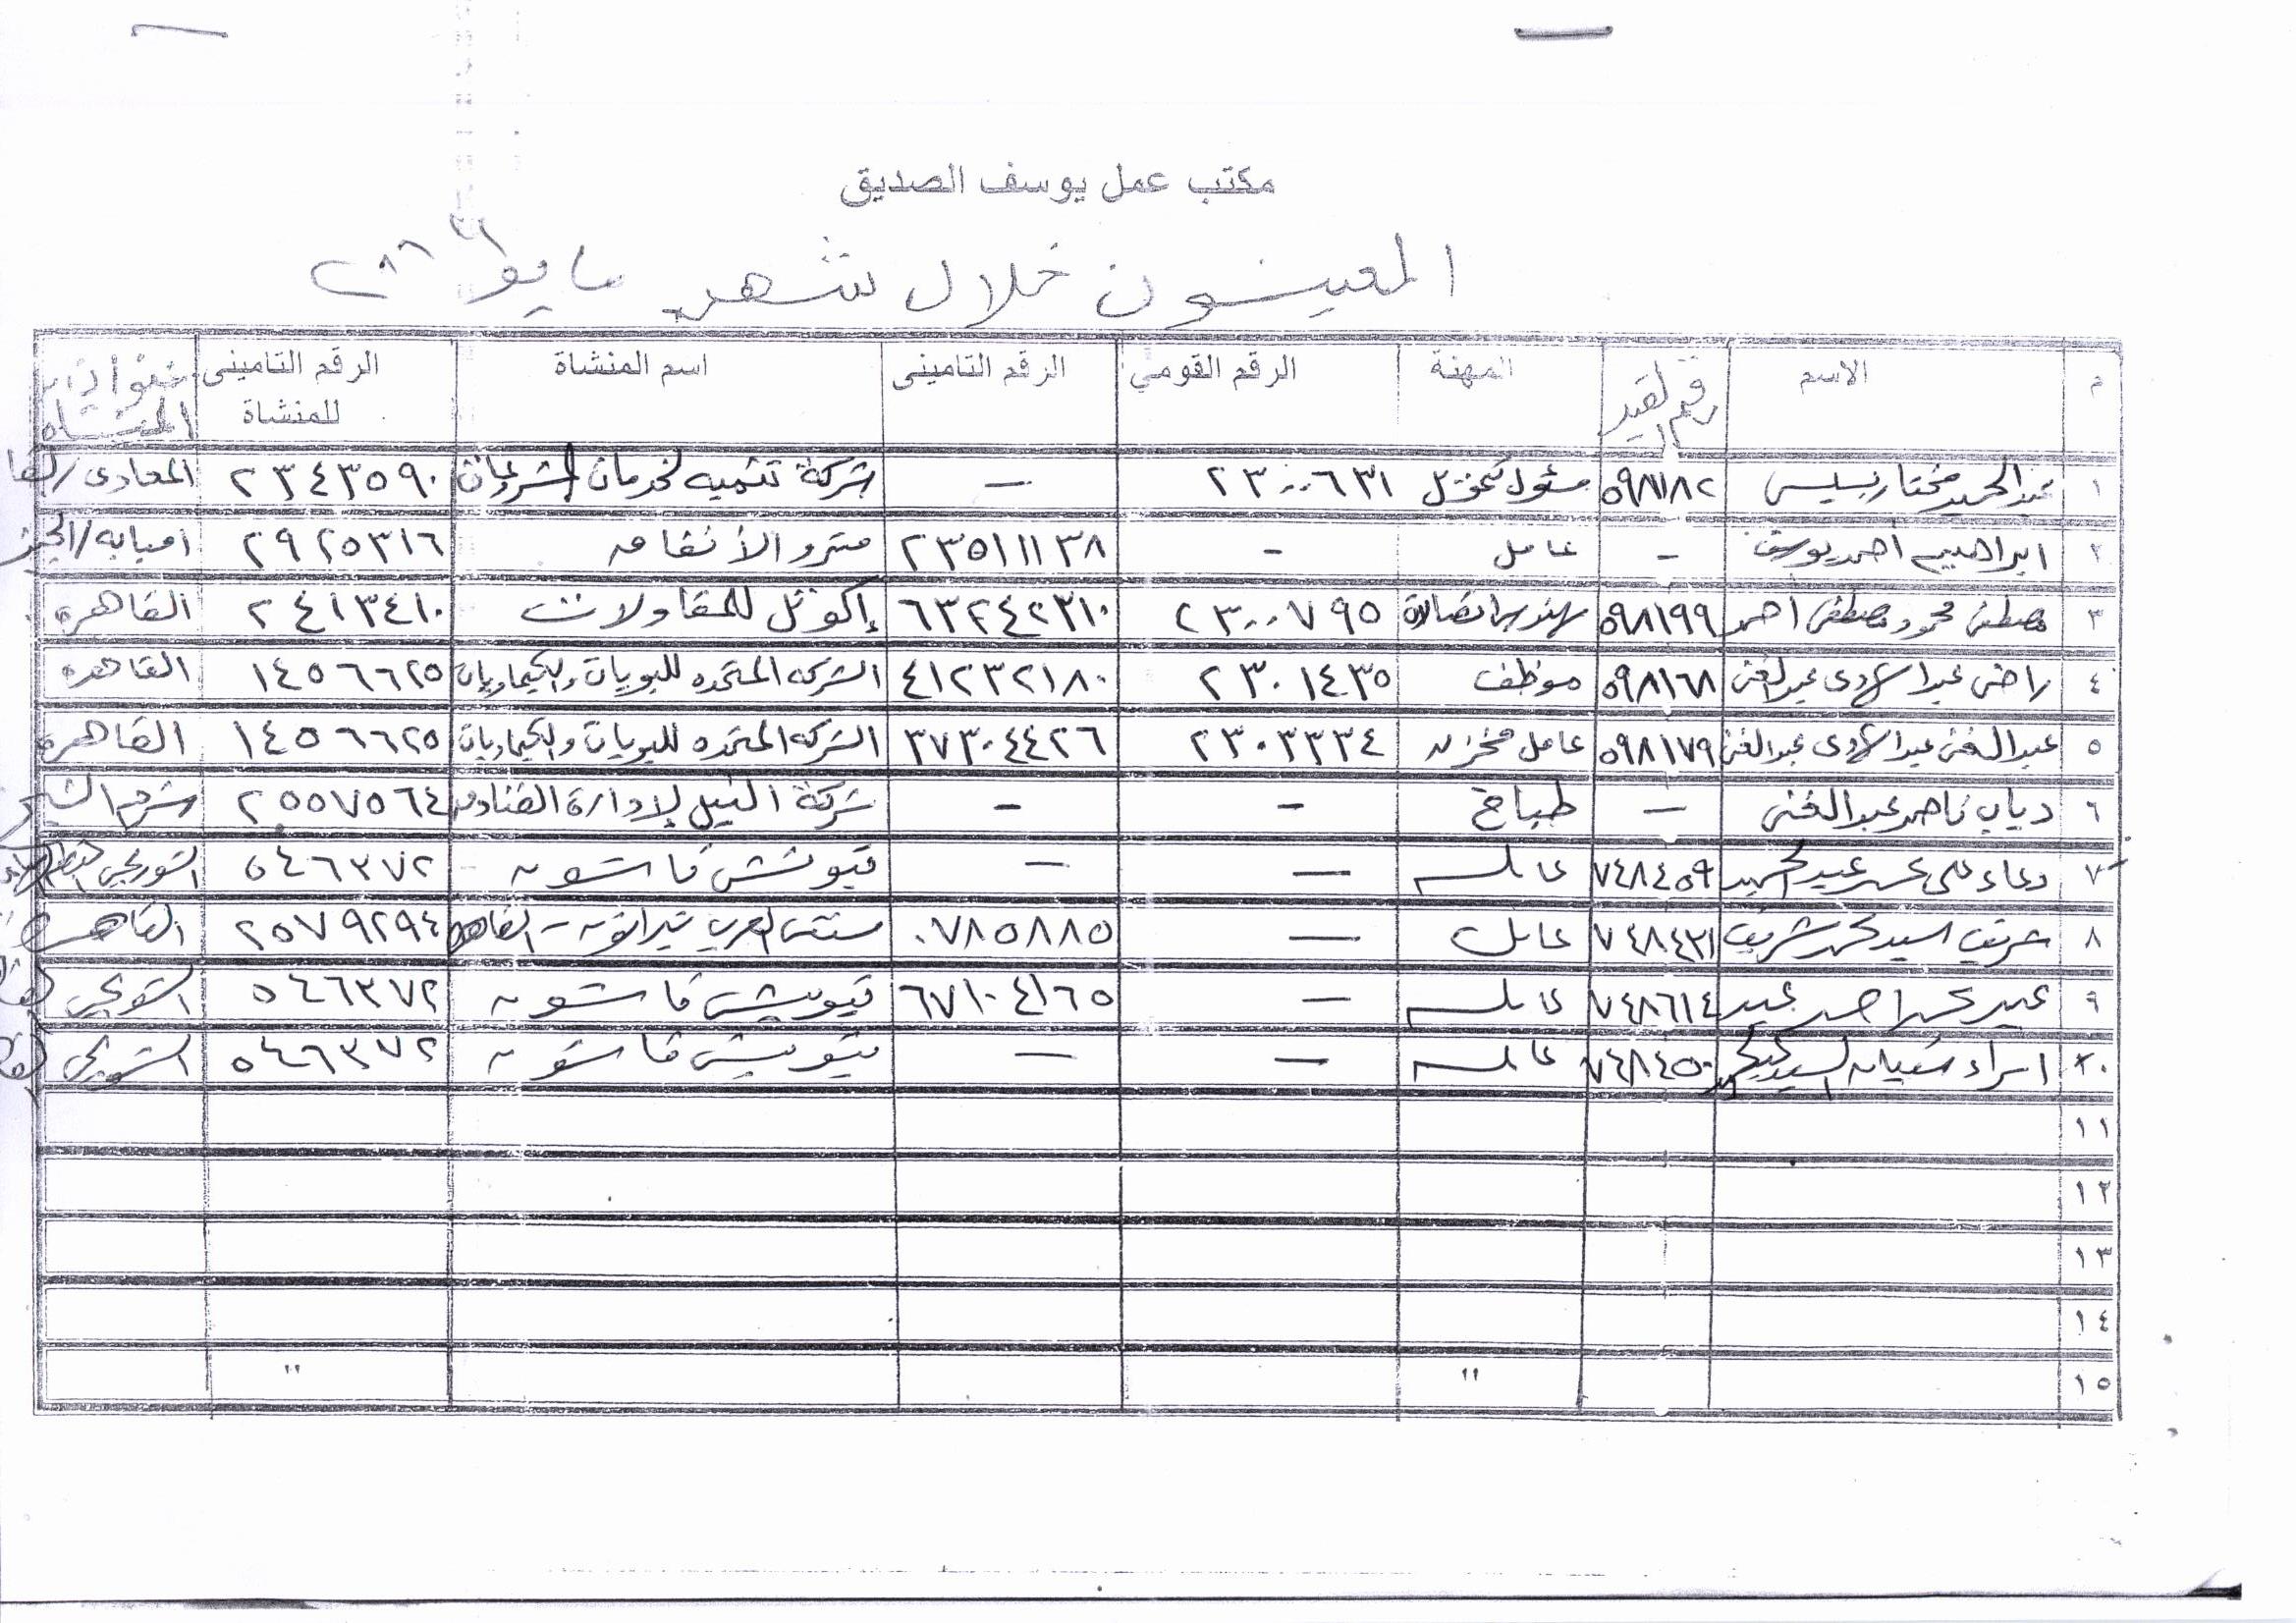 مكتب عمل يوسف الصديق
المعينون خلال شهر مايو
م الاسم رقم القيد المهنة الرقم القومي الرقم التامينى اسم المنشاة الرقم التامينى للمنشاة عنوان المنشاه
١ عبد الحميد مختار ٥٩٨١٨٢ مسئول ٢٣٠٠٦٣١ – شركة تنميه لخدمات المشروعات ٢٣٤٣٥٩٠ المعادى /
٢ ابراهيم احمد يوسف – عامل – ٢٣٥١١١٣٨ مترو الأنفاق ٢٩٢٥٣١٦ امبابه /
٣ مصطفى محمود مصطفى احمد ٥٩٨١٩٩ مهندس اتصالات ٢٣٠٠٧٩٥ ٦٣٢٤٢٣١٠ للمقاولات ٢٤١٣٤١٠ القاهرة
٤ راضى عبد الهادى عبد الغنى ٥٩٨١٦٨ موظف ٢٣٠١٤٣٥ ٤١٢٣٢١٨٠ الشركه المتحده للبويات والكيماويات ١٤٥٦٦٢٥ القاهره
٥ عبد الغنى عبد الهادى عبد الغنى ٥٩٨١٧٩ عامل مخزن ٢٣٠٣٣٣٤ ٣٧٣٠٤٤٢٦ الشركه المتحده للبويات والكيماويات ١٤٥٦٦٢٥ القاهرة
٦ دياب ناصر عبد الغنى – طباخ – – شركة النيل لإدارة الفنادق ٢٥٥٧٥٦٤ شرم الشيخ
٧ دعاء على عبد الحميد ٧٤٨٤٥٩ عامله – – فاشون ٥٤٦٣٧٢
٨ شريف السيد محمد شريف ٧٤٨٤٣١ عامل – ٠٧٨٥٨٨٥ ٢٥٧٩٢٩٤ القاهرة
٩ عبير احمد عبيد ٧٤٨٦١٤ عامله – ٦٧١٠٤١٦٥ فاشون ٥٤٦٣٧٢
١٠ اسراء شعبان السيد ٧٤٨٤٥٠ عامله – – فاشون ٥٤٦٣٧٢
١١
١٢
١٣
١٤
١٥ " "